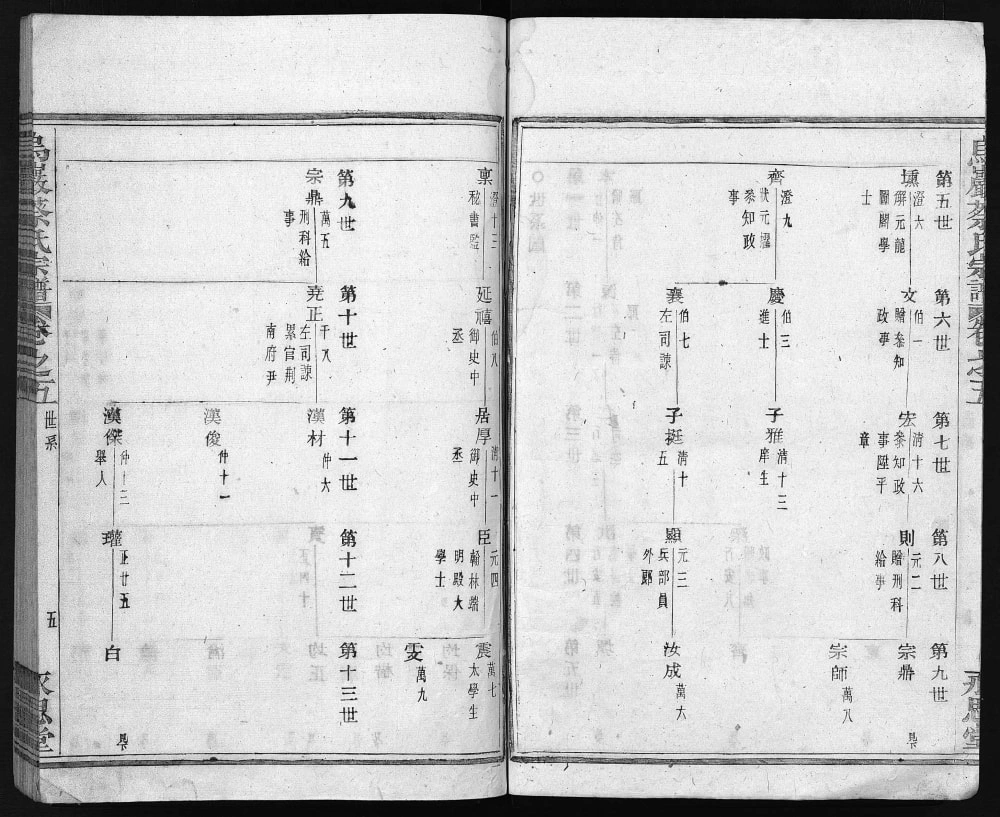 第五世
第六世
第七世
第八世
第九世
壎
澄六
解元龍
圖閣學
士
文
伯一
贈叅知
政事
宏
清十六
叅知政
事陞平
章
則
元二
贈刑科
給事
宗鼎
宗師
萬八
齊
澄九
狀元擢
叅知政
事
慶
伯三
進士
子雅
清十三
庠生
襄
伯七
左司諫
子挺
清十
五
顯
元三
兵部員
外郎
汝成
萬六
稟
澄十三
秘書監
延禧
伯八
御史中
丞
居厚
清十一
御史中
丞
臣
元四
翰林端
明殿大
學士
震
萬七
太學生
雯
萬九
第九世
第十世
第十一世
第十二世
第十三世
宗鼎
萬五
刑科給
事
堯正
千八
左司諫
累官荆
南府尹
漢材
仲六
漢俊
仲十一
漢傑
仲十三
舉人
瓘
正廿五
白
烏巖蔡氏宗譜
卷之五
世系
五
永思堂